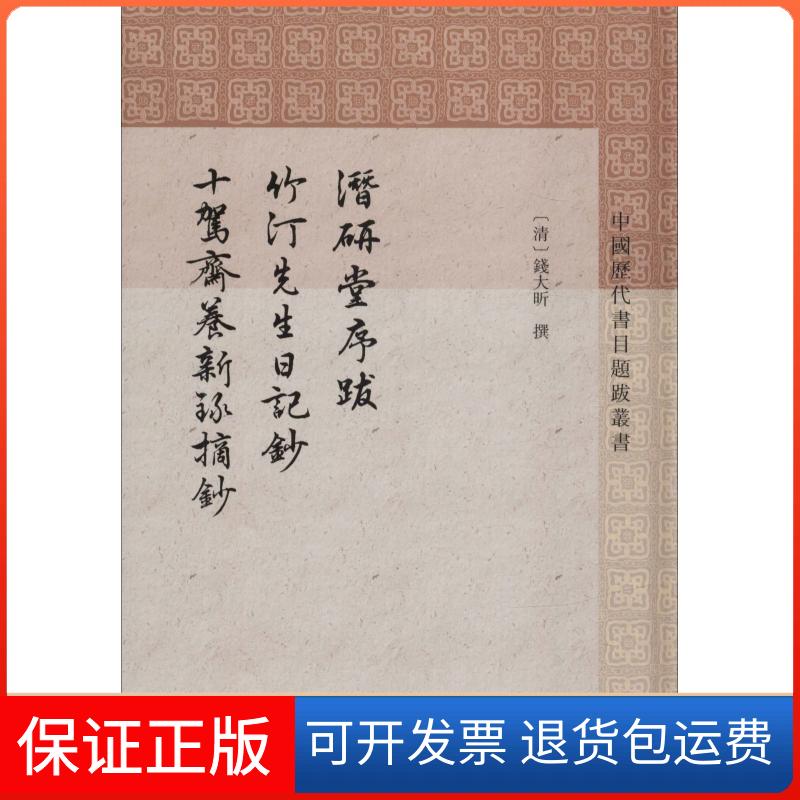 中國歷代書目題跋叢書
〔清〕錢大昕 撰
潛研堂序跋
竹汀先生日記鈔
十駕齋養新錄摘鈔
保证正版
可开发票 退货包运费